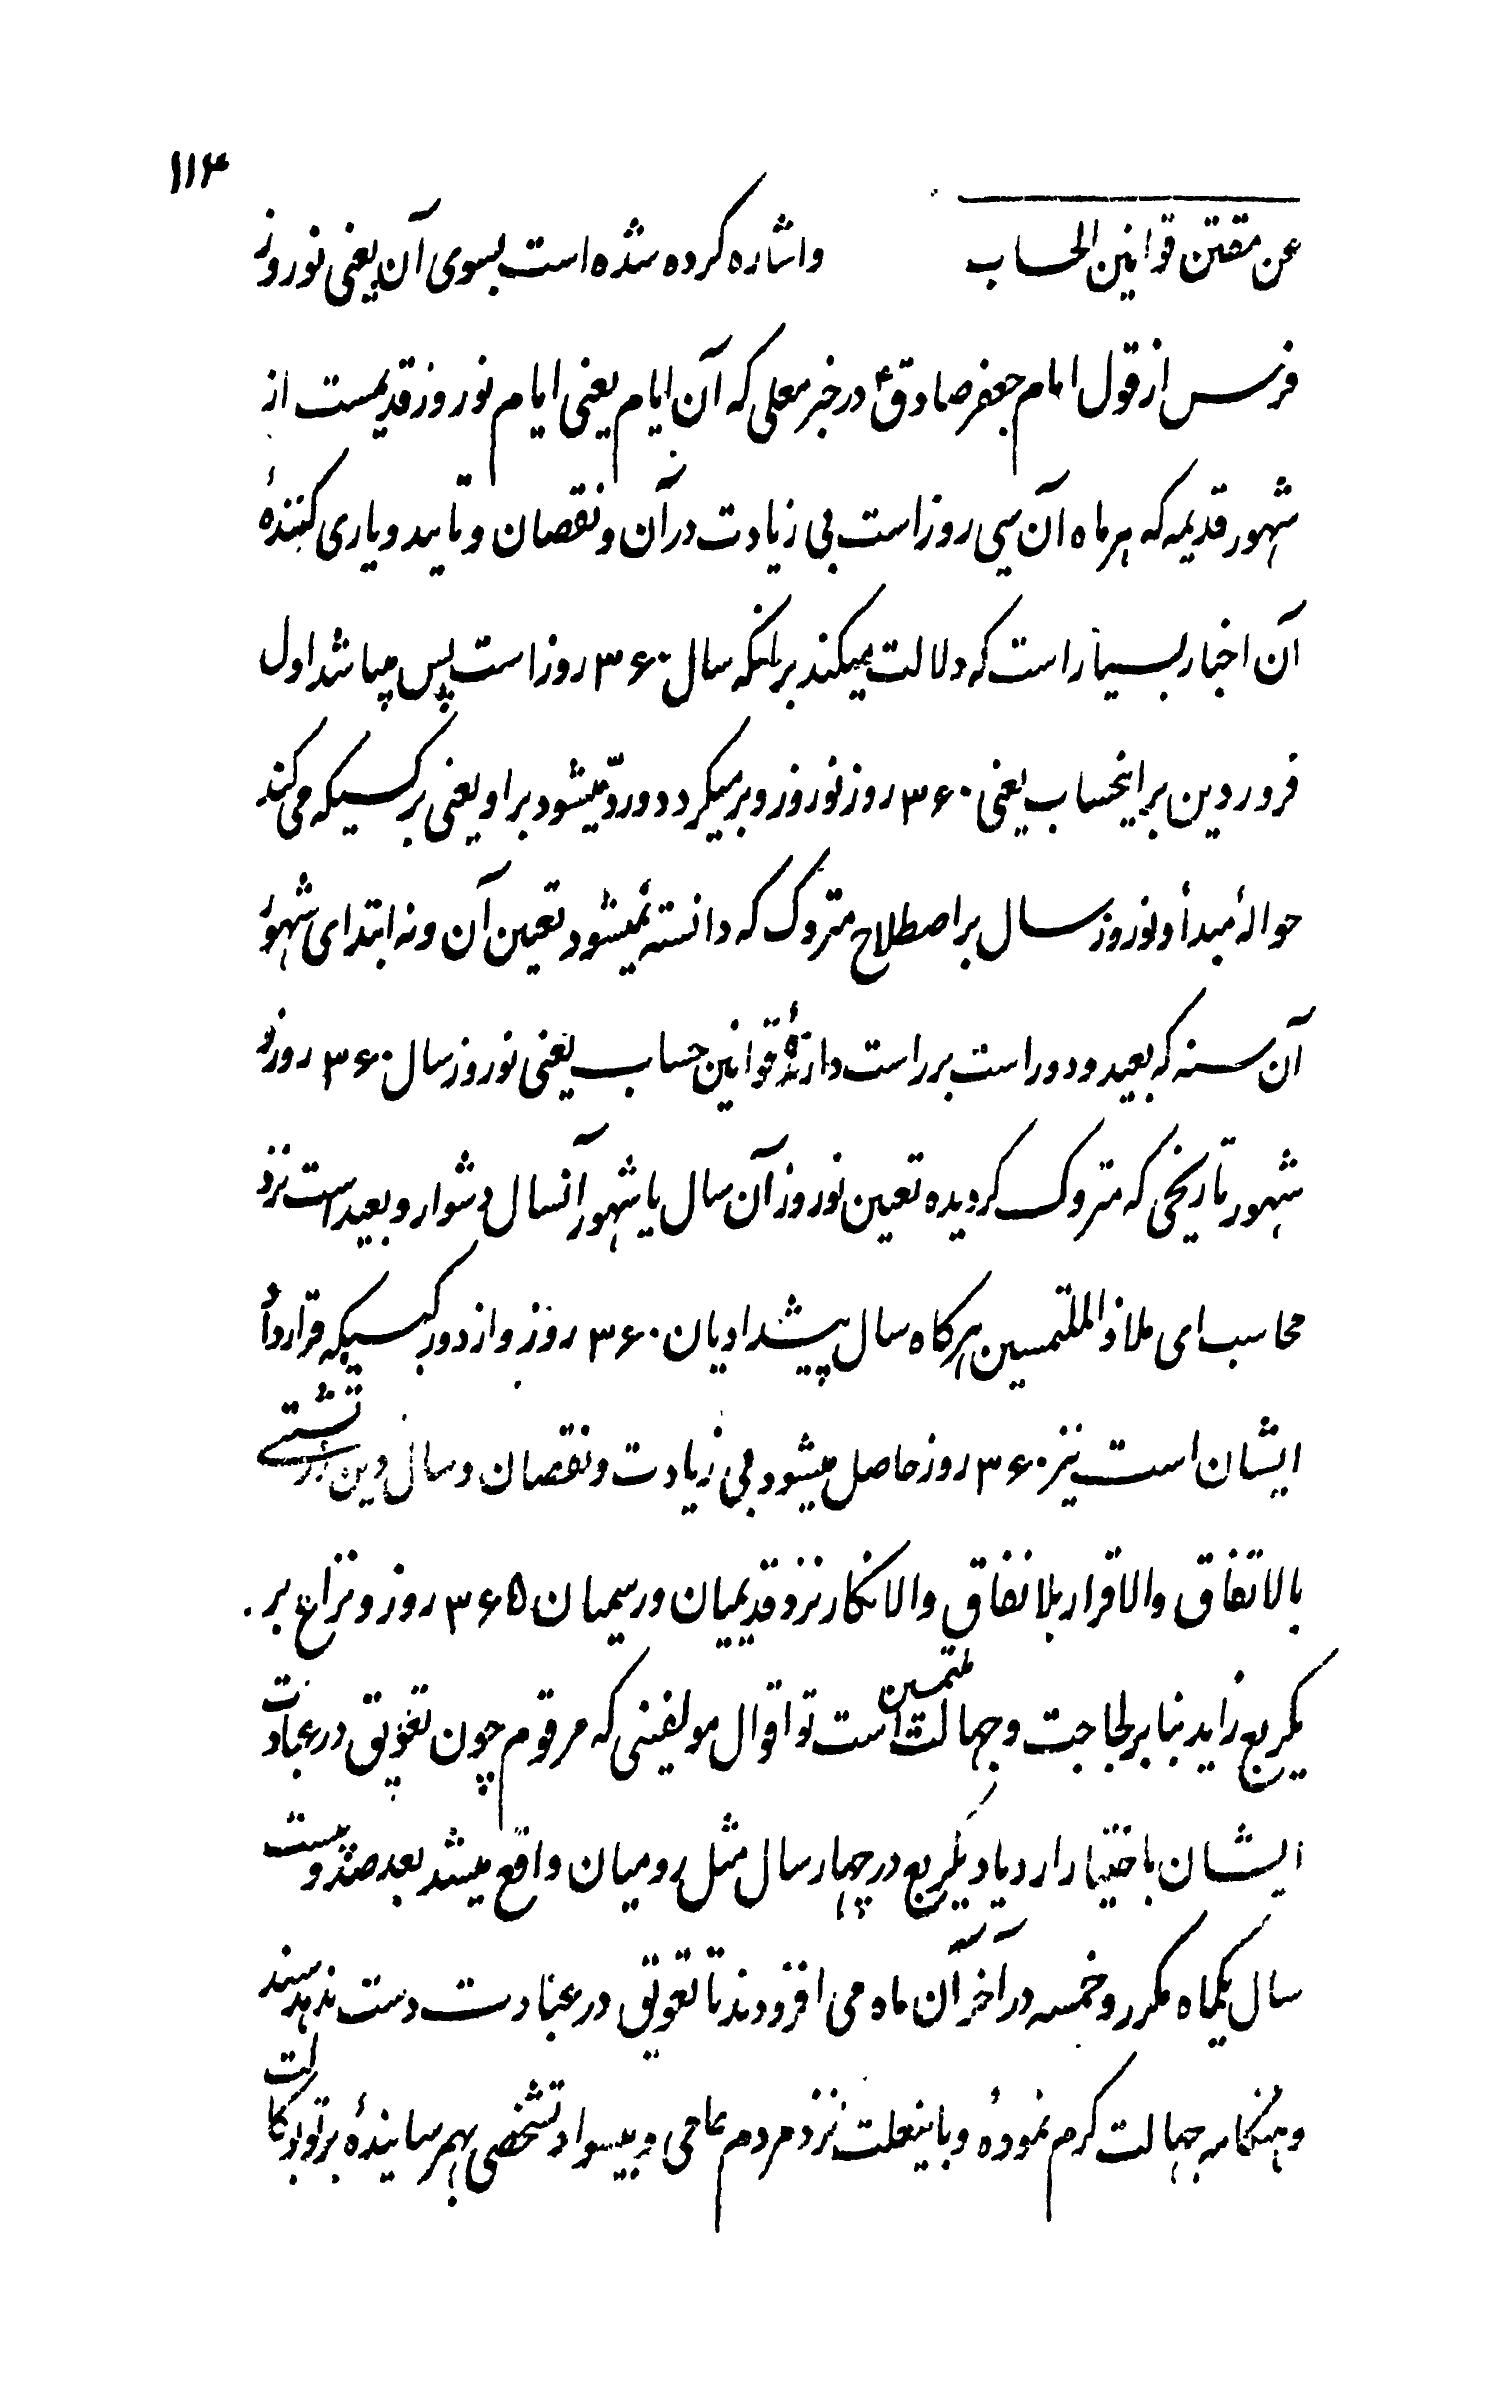 ۱۱۴
عن مقنن قوانین الحساب واشاره کرده شده است بسوی آن یعنی نوروز
فرس از قول امام جعفر صادق ؑ در خبر معلی که آن ایام یعنی ایام نوروز قدیمست از
شهور قدیمه که هر ماه آن سی روز است بی زیادت در آن و نقصان و تایید و یاری کنندهٔ
آن اخبار بسیار است که دلالت میکند برانکه سال ۳۶۰ روز است پس میباشد اول
فروردین بر اینحساب یعنی ۳۶۰ روز نوروز و برمیکردد و ردّ میشود بر او یعنی بر کسیکه می کند
حوالهٔ مبدأ و نوروز سال بر اصطلاح متروک که دانسته نمیشود تعین آن و نه ابتدای شهور
آن سنه که بعید و دور است بر راست دارندهٔ قوانین حساب یعنی نوروز سال ۳۶۰ روز و
شهور تاریخی که متروک کردیده تعین نوروز آن سال یا شهور آنسال دشوار و بعید است نزد
محاسب ای ملاذ الملتمسین هرکاه سال پیشدادیان ۳۶۰ روز و از دور کبسیکه قرارداد
ایشان است نیز ۳۶۰ روز حاصل میشود بی زیادت و نقصان و سال دین زرتشتی
بالاتفاق والاقرار بلا نفاق والانکار نزد قدیمیان و رسمیان ۳۶۵ روز و نزاع بر
یکربع زاید بنا بر لجاجت و جهالت ملتمسین است تو اقوال مولفینی که مرقوم چون تعویق در عبادت
ایشان باختیار ازدیاد یکربع در چهار سال مثل رومیان واقع میشد بعد صد و بیست
سال یکماه مکرر و خمسه در آخر آن ماه می افزودند تا تعویق در عبادت دست ندهد سند
و هنکامه جهالت کرم نمودهٔ و باینعلت نزد مردم عامی و بیسواد تشخصی بهم رسانیدهٔ بر تو بوکالت